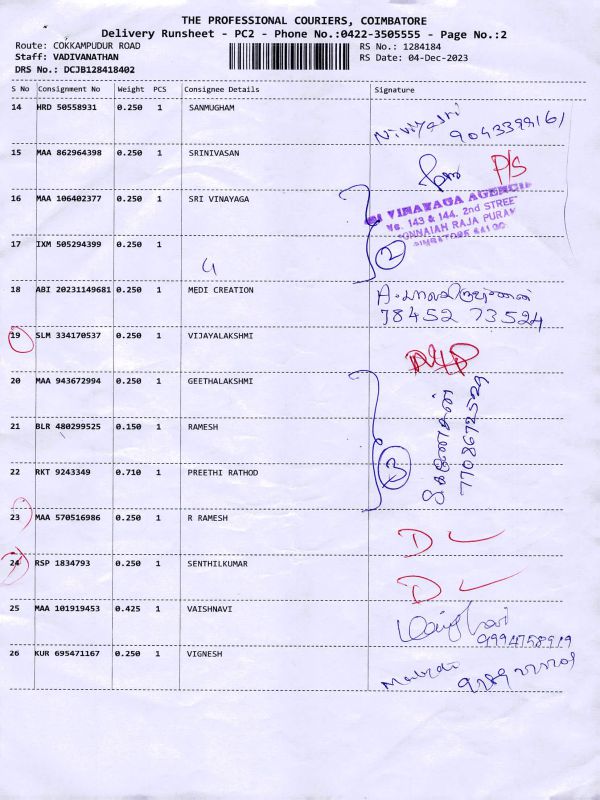 THE PROFESSIONAL COURIERS, COIMBATORE
Delivery Runsheet - PC2 - Phone No.:0422-3505555 - Page No.:2
Route: COKKAMPUDUR ROAD RS No.: 1284184
Staff: VADIVANATHAN RS Date: 04-Dec-2023
DRS No.: DCJB128418402
S No Consignment No Weight PCS Consignee Details Signature
14 HRD 50558931 0.250 1 SANMUGHAM
9043399161
15 MAA 862964398 0.250 1 SRINIVASAN P/S
16 MAA 106402377 0.250 1 SRI VINAYAGA
VINAYAGA AGENCI
No. 143 & 144. 2nd STREE
ONNAIAH RAJA PURAM
17 IXM 505294399 0.250 1 2
18 ABI 20231149681 0.250 1 MEDI CREATION
78452 73524
19 SLM 334170537 0.250 1 VIJAYALAKSHMI
20 MAA 943672994 0.250 1 GEETHALAKSHMI
21 BLR 480299525 0.150 1 RAMESH
7708672529
22 RKT 9243349 0.710 1 PREETHI RATHOD 3
23 MAA 570516986 0.250 1 R RAMESH DL
24 RSP 1834793 0.250 1 SENTHILKUMAR DL
25 MAA 101919453 0.425 1 VAISHNAVI
9994758919
26 KUR 695471167 0.250 1 VIGNESH